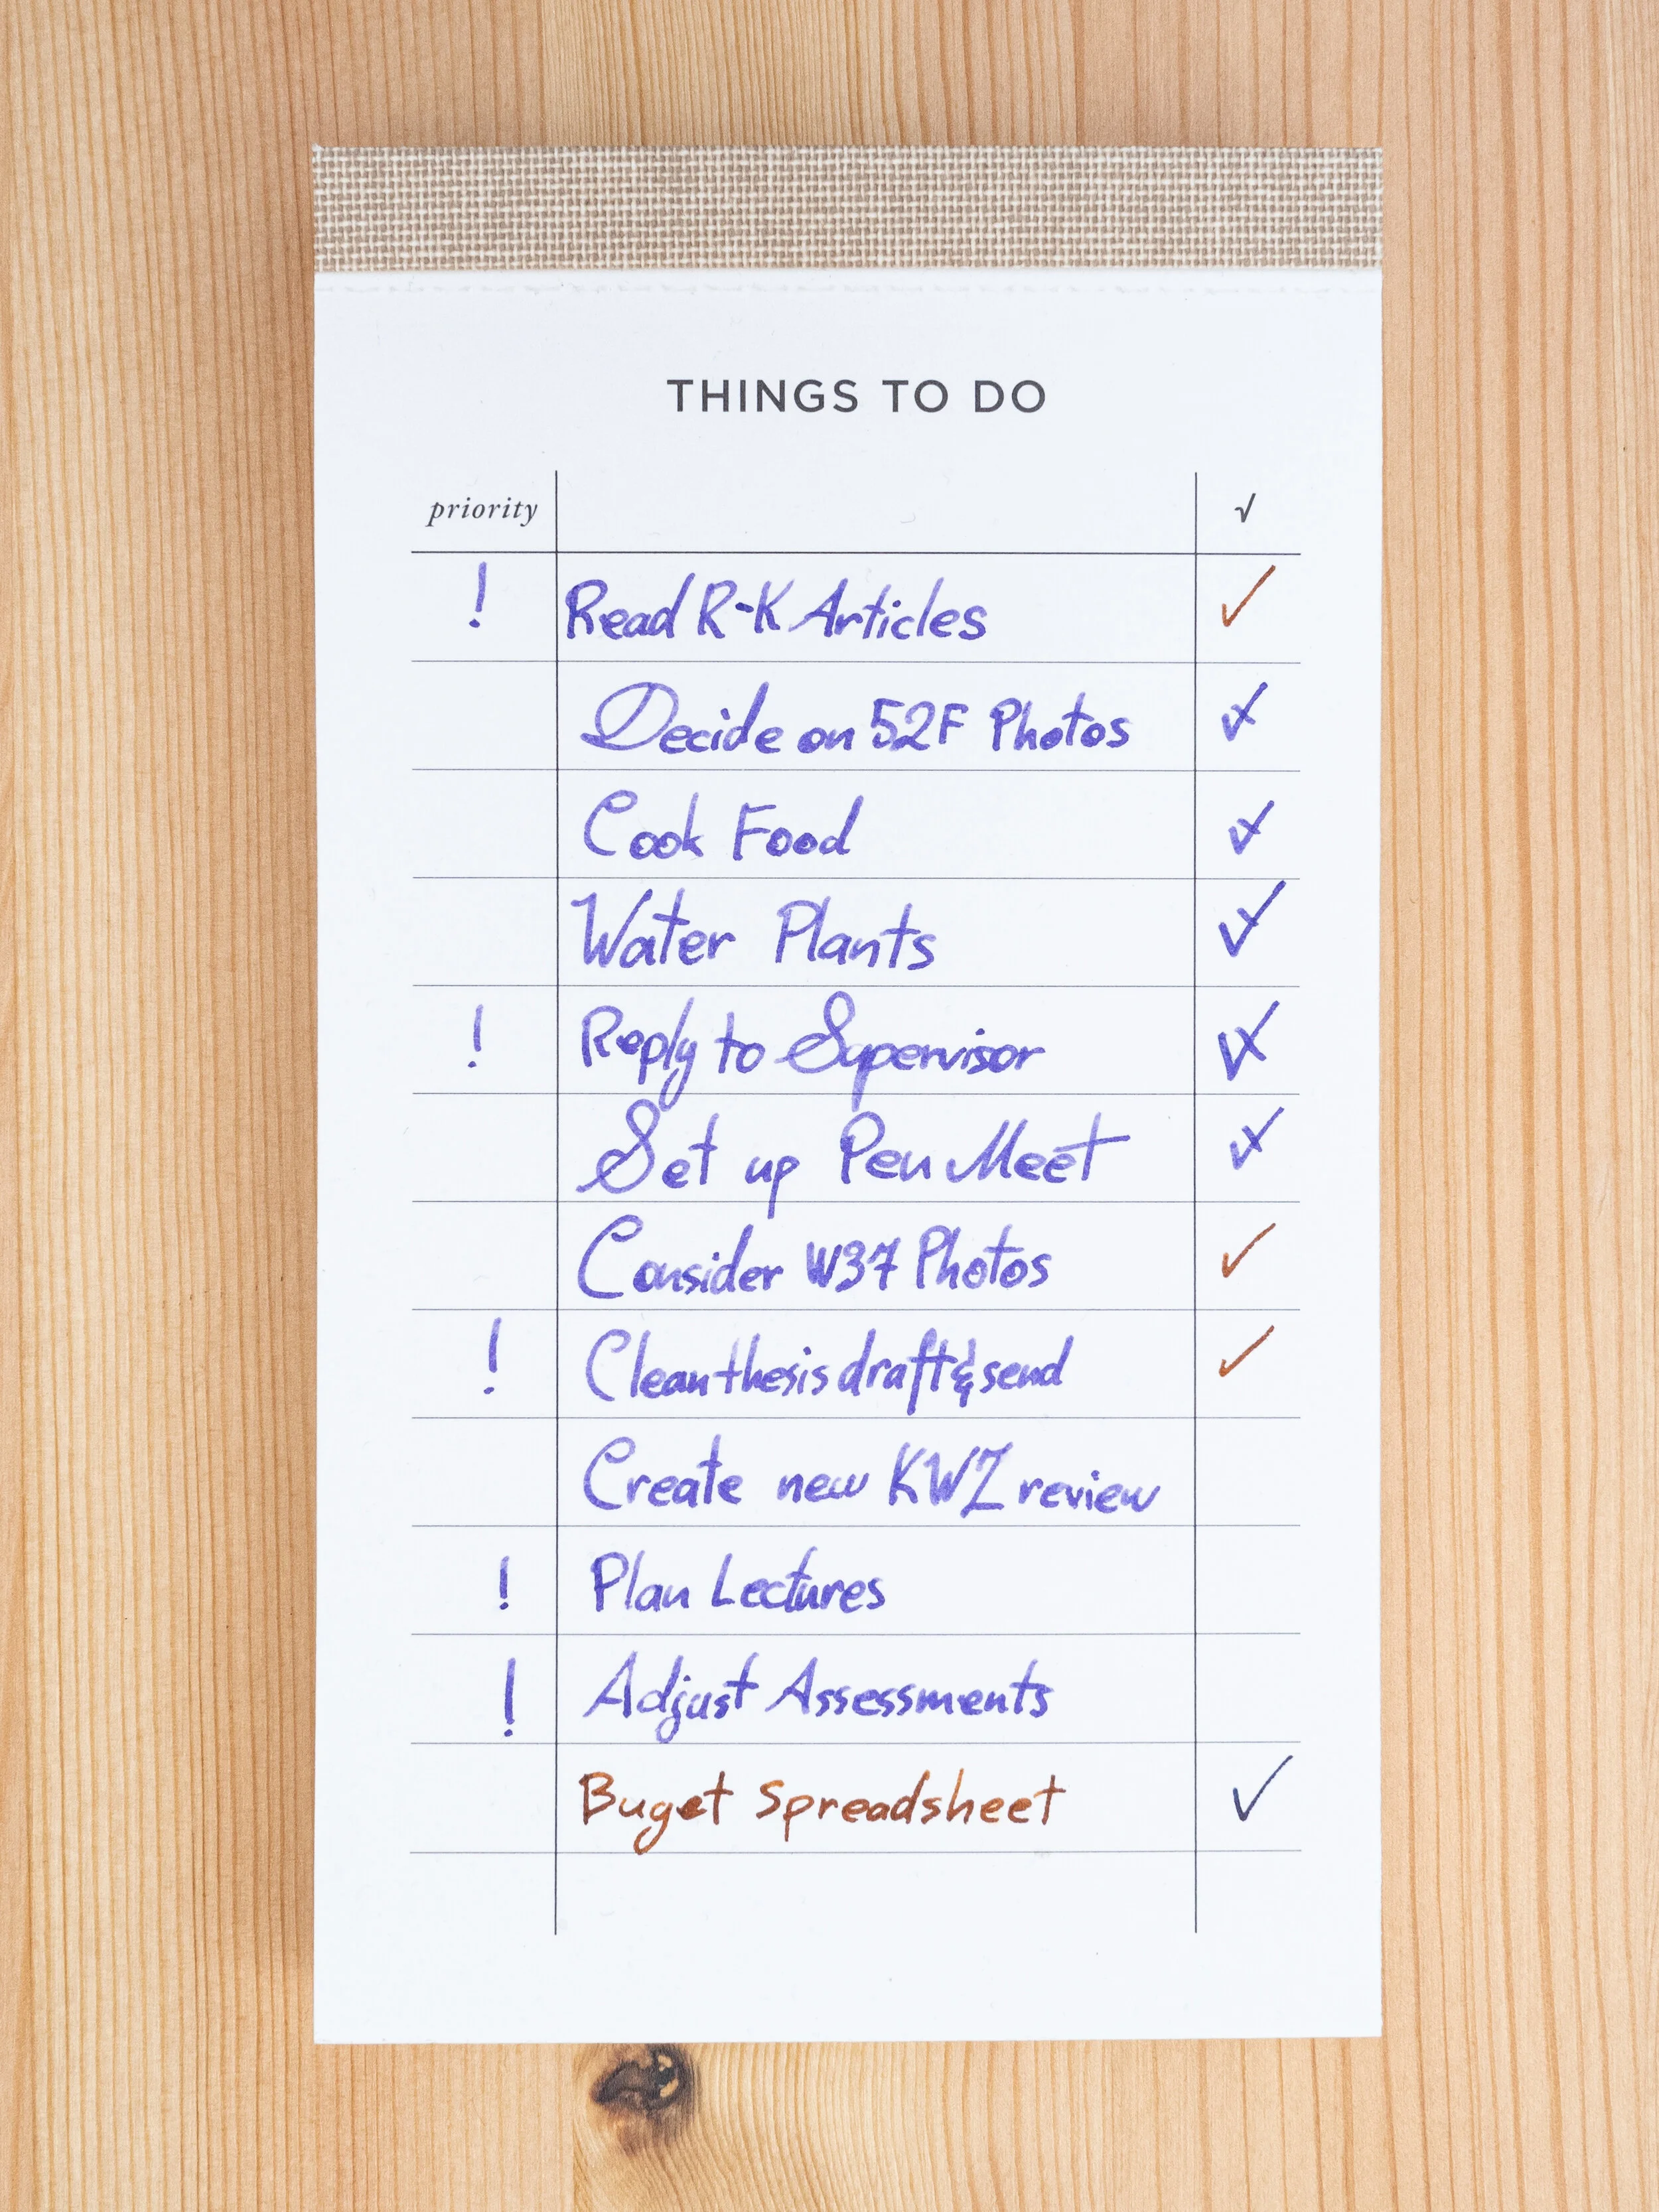 THINGS TO DO
priority √
! Read R-K Articles ✓
Decide on 52F Photos ✓
Cook Food ✓
Water Plants ✓
! Reply to Supervisor ✓
Set up Pen Meet ✓
Consider W37 Photos ✓
! Clean thesis draft & send ✓
Create new KWZ review
! Plan Lectures
! Adjust Assessments
Buget Spreadsheet ✓